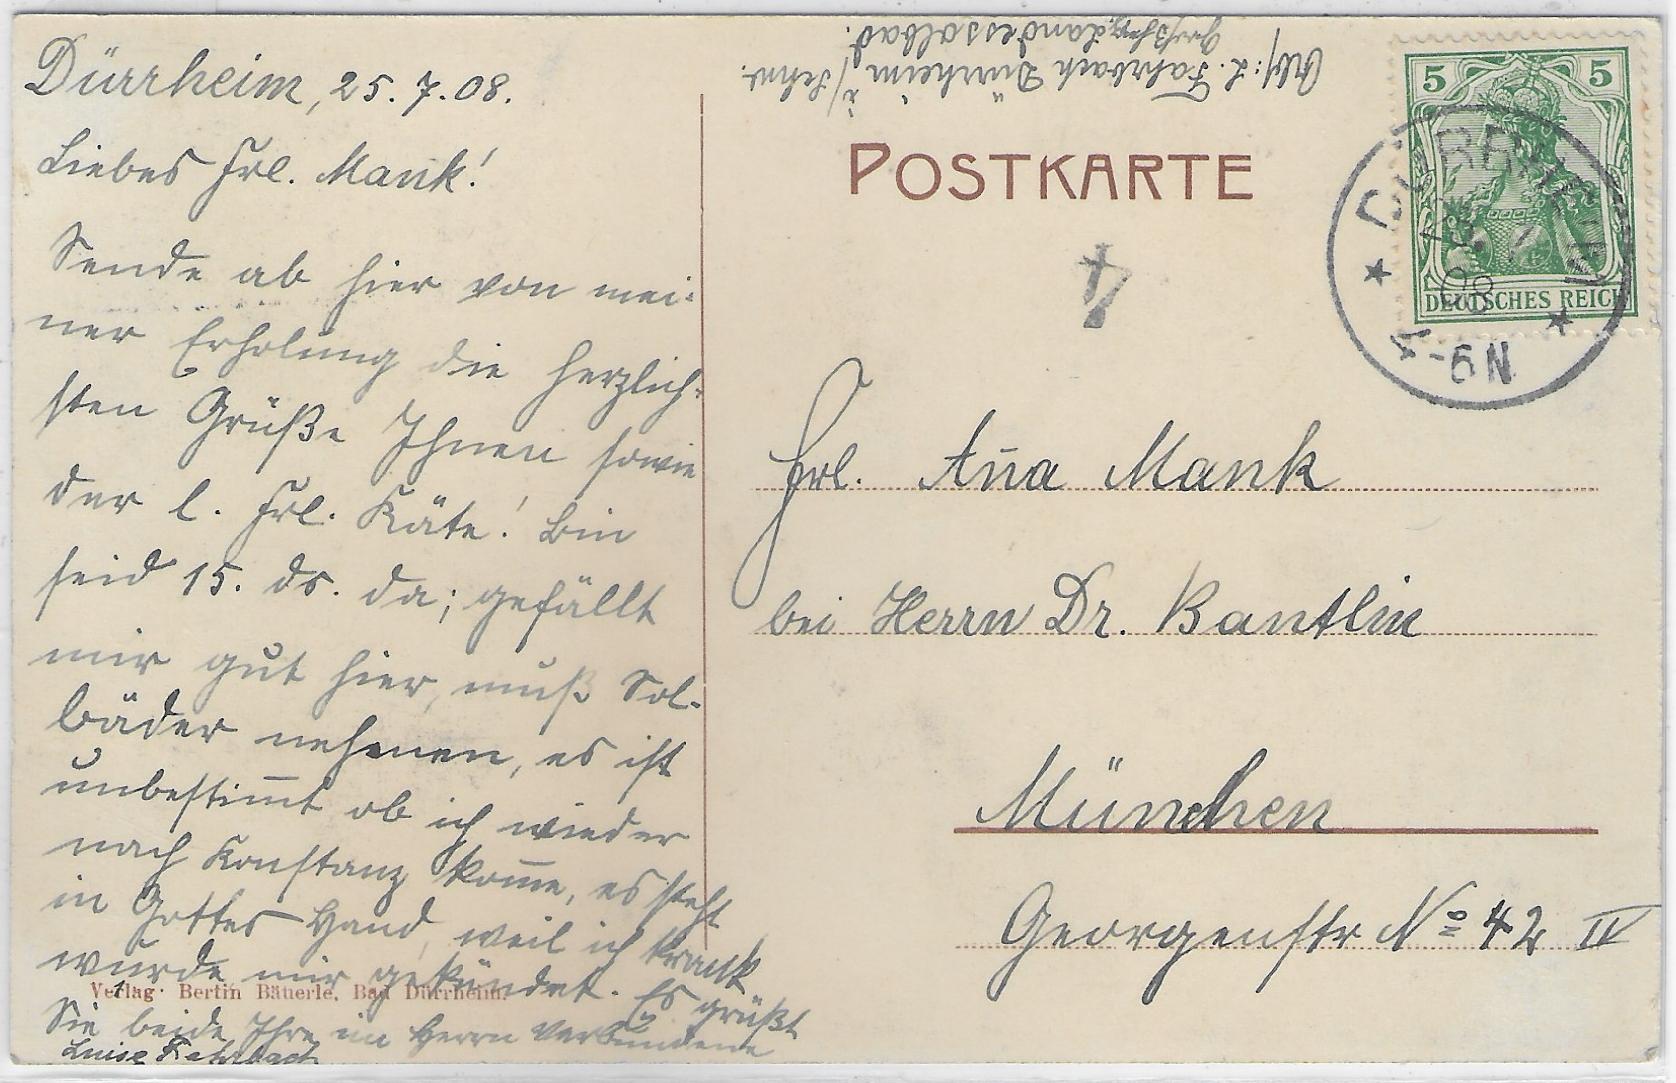 Dürrheim, 25. 7. 08.
Liebes Frl. Mank!
Sende ab hier von mei-
ner Erholung die herzlich-
sten Grüße Ihnen sowie
der l. Frl. Käte! Bin
seid 15. ds. da; gefällt
mir gut hier, muß Sol-
bäder nehmen, es ist
unbestim̅t ob ich wieder
nach Konstanz kom̅e, es steht
in Gottes Hand, weil ich krank
wurde mir gekündet. Es grüßt
Sie beide Ihre im Herrn verbundene
Luise Fahrbach
Verlag Bertin Bäuerle, Bad Dürrheim.
Abs: L. Fahrbach Dürrheim
Großherz. Landessolbad.
POSTKARTE
5 5
DEUTSCHES REICH
DÜRRHEIM
08
4-6N
Frl. An̅a Mank
bei Herrn Dr. Bantlin
München
Georgenstr No 42 IV